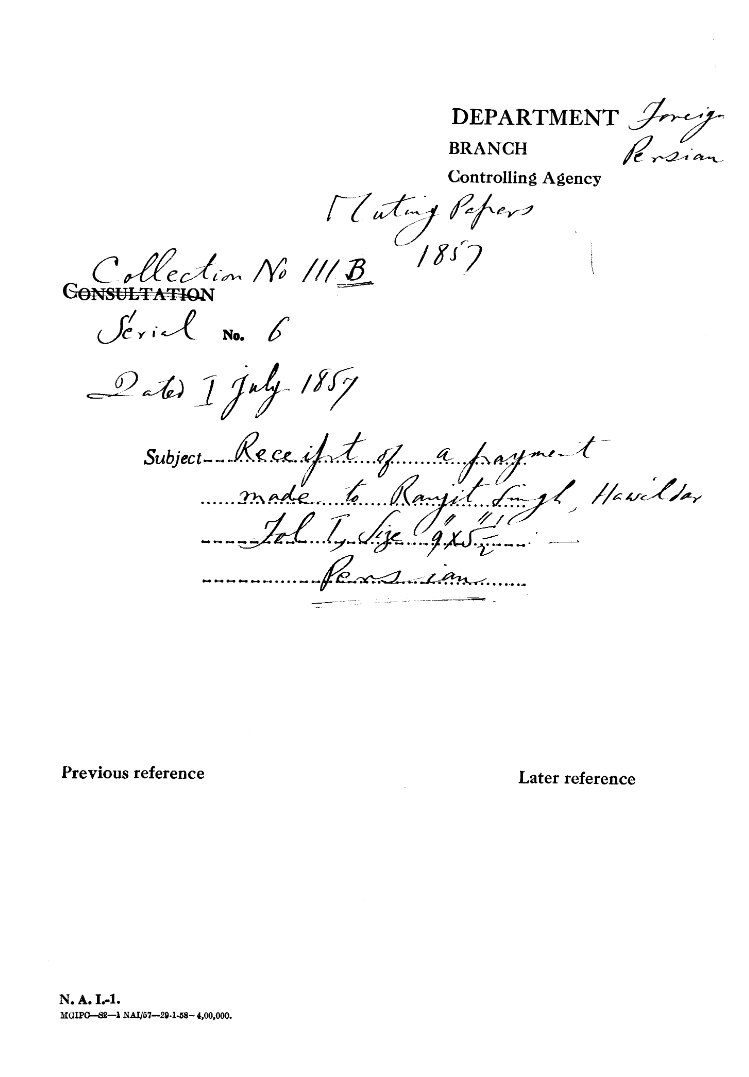 DEPARTMENT Foreign
BRANCH Persian
Controlling Agency
Mutiny Papers
1857
Collection No 111 B
CONSULTATION
Serial No. 6
Dated I July 1857
Subject Receipt of a payment
made to Ranjit Singh, Hawildar
Fol I, Size 9" x 5 1/2"
Persian
Previous reference
Later reference
N. A. I.-1.
MGIPC—S2—1 NAI/57—29-1-58—4,00,000.